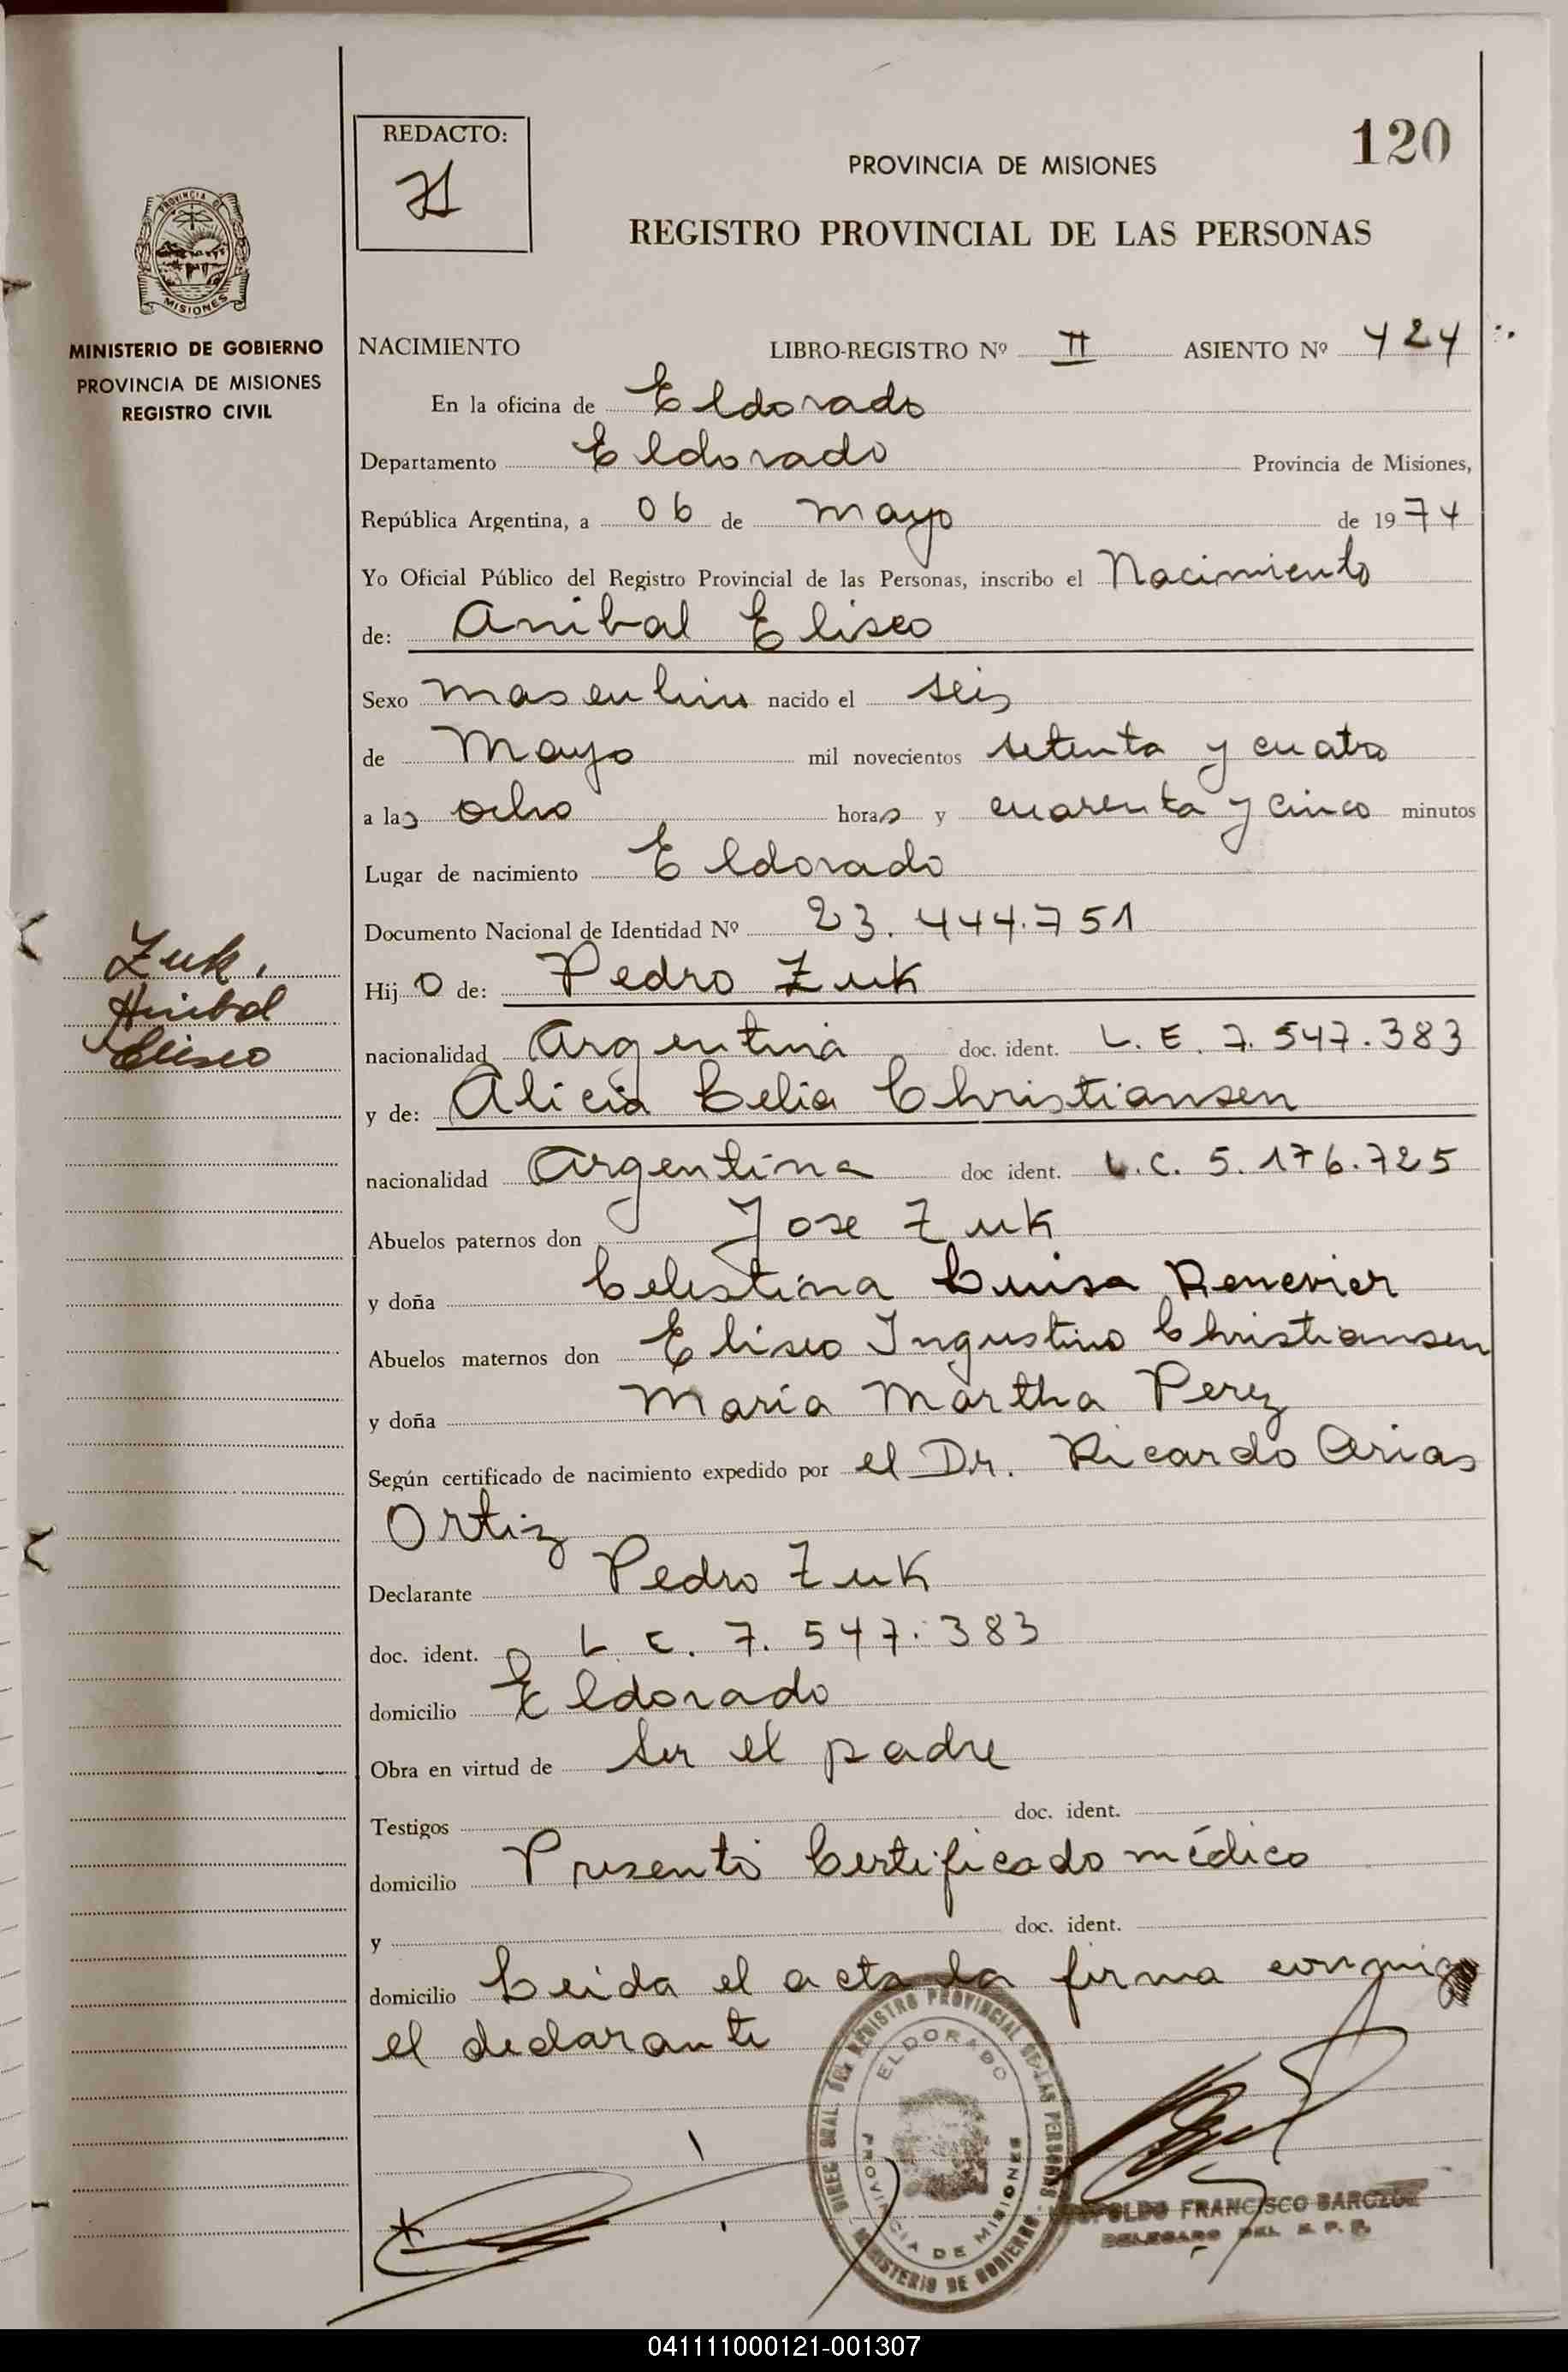 REDACTO:
120
PROVINCIA DE MISIONES
REGISTRO PROVINCIAL DE LAS PERSONAS
PROVINCIA DE
MISIONES
MINISTERIO DE GOBIERNO
PROVINCIA DE MISIONES
REGISTRO CIVIL
NACIMIENTO LIBRO-REGISTRO Nº II ASIENTO Nº 424
En la oficina de Eldorado
Departamento Eldorado Provincia de Misiones,
República Argentina, a 06 de mayo de 1974
Yo Oficial Público del Registro Provincial de las Personas, inscribo el Nacimiento
de: Anibal Eliseo
Sexo masculino nacido el seis
de Mayo mil novecientos setenta y cuatro
a las ocho horas y cuarenta y cinco minutos
Lugar de nacimiento Eldorado
Documento Nacional de Identidad Nº 23.444.751
Zuk,
Anibal
Eliseo
Hijo de: Pedro Zuk
nacionalidad Argentina doc. ident. L.E. 7.547.383
y de: Alicia Celia Christiansen
nacionalidad Argentina doc ident. L.C. 5.176.725
Abuelos paternos don Jose Zuk
y doña Celestina Luisa Renevier
Abuelos maternos don Eliseo Ingustino Christiansen
y doña Maria Martha Perez
Según certificado de nacimiento expedido por el Dr. Ricardo Arias
Ortiz
Declarante Pedro Zuk
doc. ident. L.E. 7.547.383
domicilio Eldorado
Obra en virtud de ser el padre
Testigos doc. ident.
domicilio Presentó Certificado médico
y doc. ident.
domicilio Leida el acta la firma conmigo
el declarante
DIREC. GRAL. DEL REGISTRO PROVINCIAL DE LAS PERSONAS
ELDORADO
PROVINCIA DE MISIONES
MINISTERIO DE GOBIERNO
FRANCISCO
DELEGADO DEL R. P. P.
041111000121-001307